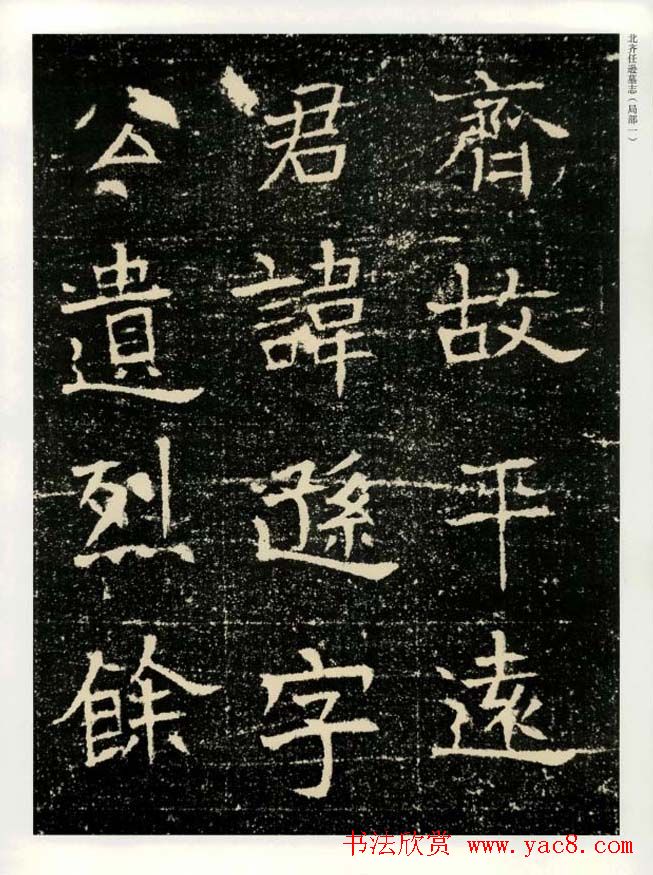 北齐任逊墓志（局部一）
齊故平遠
君諱遜字
公遺烈餘
书法欣赏 www.yac8.com